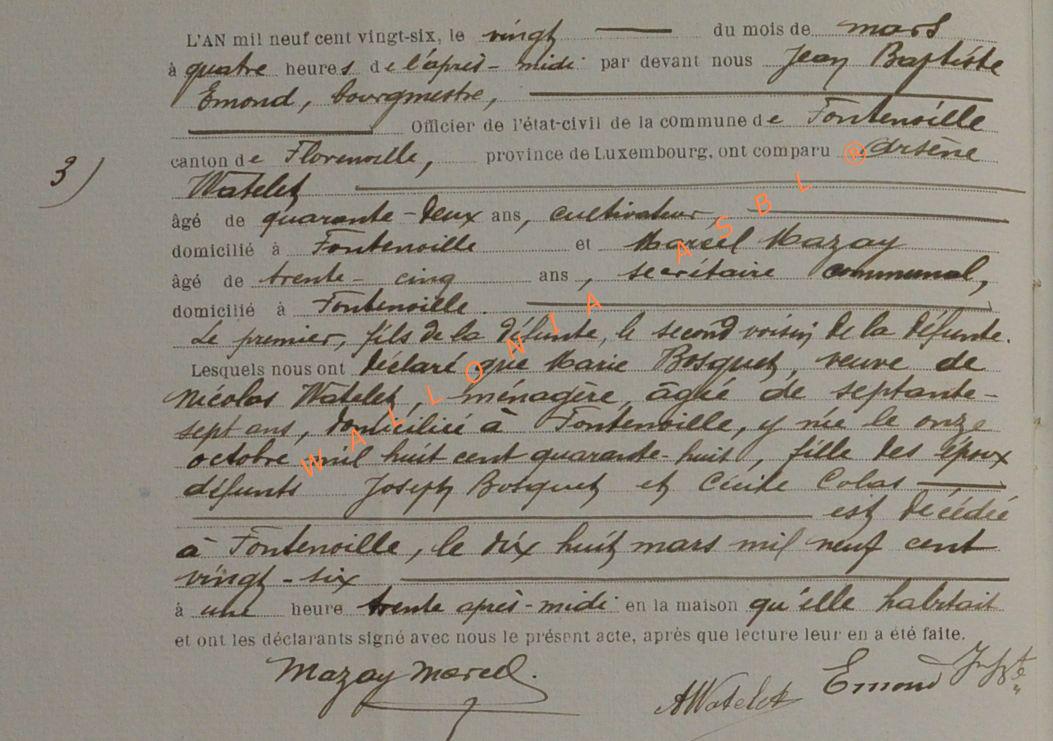 L'AN mil neuf cent vingt-six, le vingt du mois de mars
à quatre heures de l'après-midi par devant nous Jean Baptiste
Emond, bourgmestre,
Officier de l'état-civil de la commune de Fontenoille
canton de Florenville, province de Luxembourg, ont comparu Arsène
3)
Watelet
âgé de quarante-deux ans, cultivateur,
domicilié à Fontenoille et Marcel Mazay
âgé de trente-cinq ans, secrétaire communal,
domicilié à Fontenoille.
Le premier, fils de la défunte, le second voisin de la défunte.
Lesquels nous ont déclaré que Marie Bosquet, veuve de
Nicolas Watelet, ménagère, âgée de septante-
sept ans, domiciliée à Fontenoille, y née le onze
octobre mil huit cent quarante-huit, fille des époux
défunts Joseph Bosquet et Cécile Colas
est décédée
à Fontenoille, le dix huit mars mil neuf cent
vingt-six
à une heure trente après-midi en la maison qu'elle habitait
et ont les déclarants signé avec nous le présent acte, après que lecture leur en a été faite.
Mazay Marcel. AWatelet Emond
WALLONIA ASBL ®